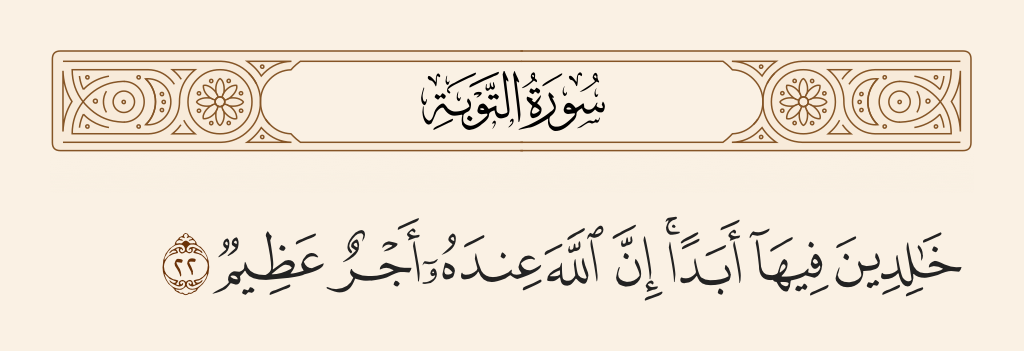 سُورَةُ التَّوۡبَةِ
خَٰلِدِينَ فِيهَآ أَبَدًاۚ إِنَّ ٱللَّهَ عِندَهُۥٓ أَجۡرٌ عَظِيمٞ ٢٢